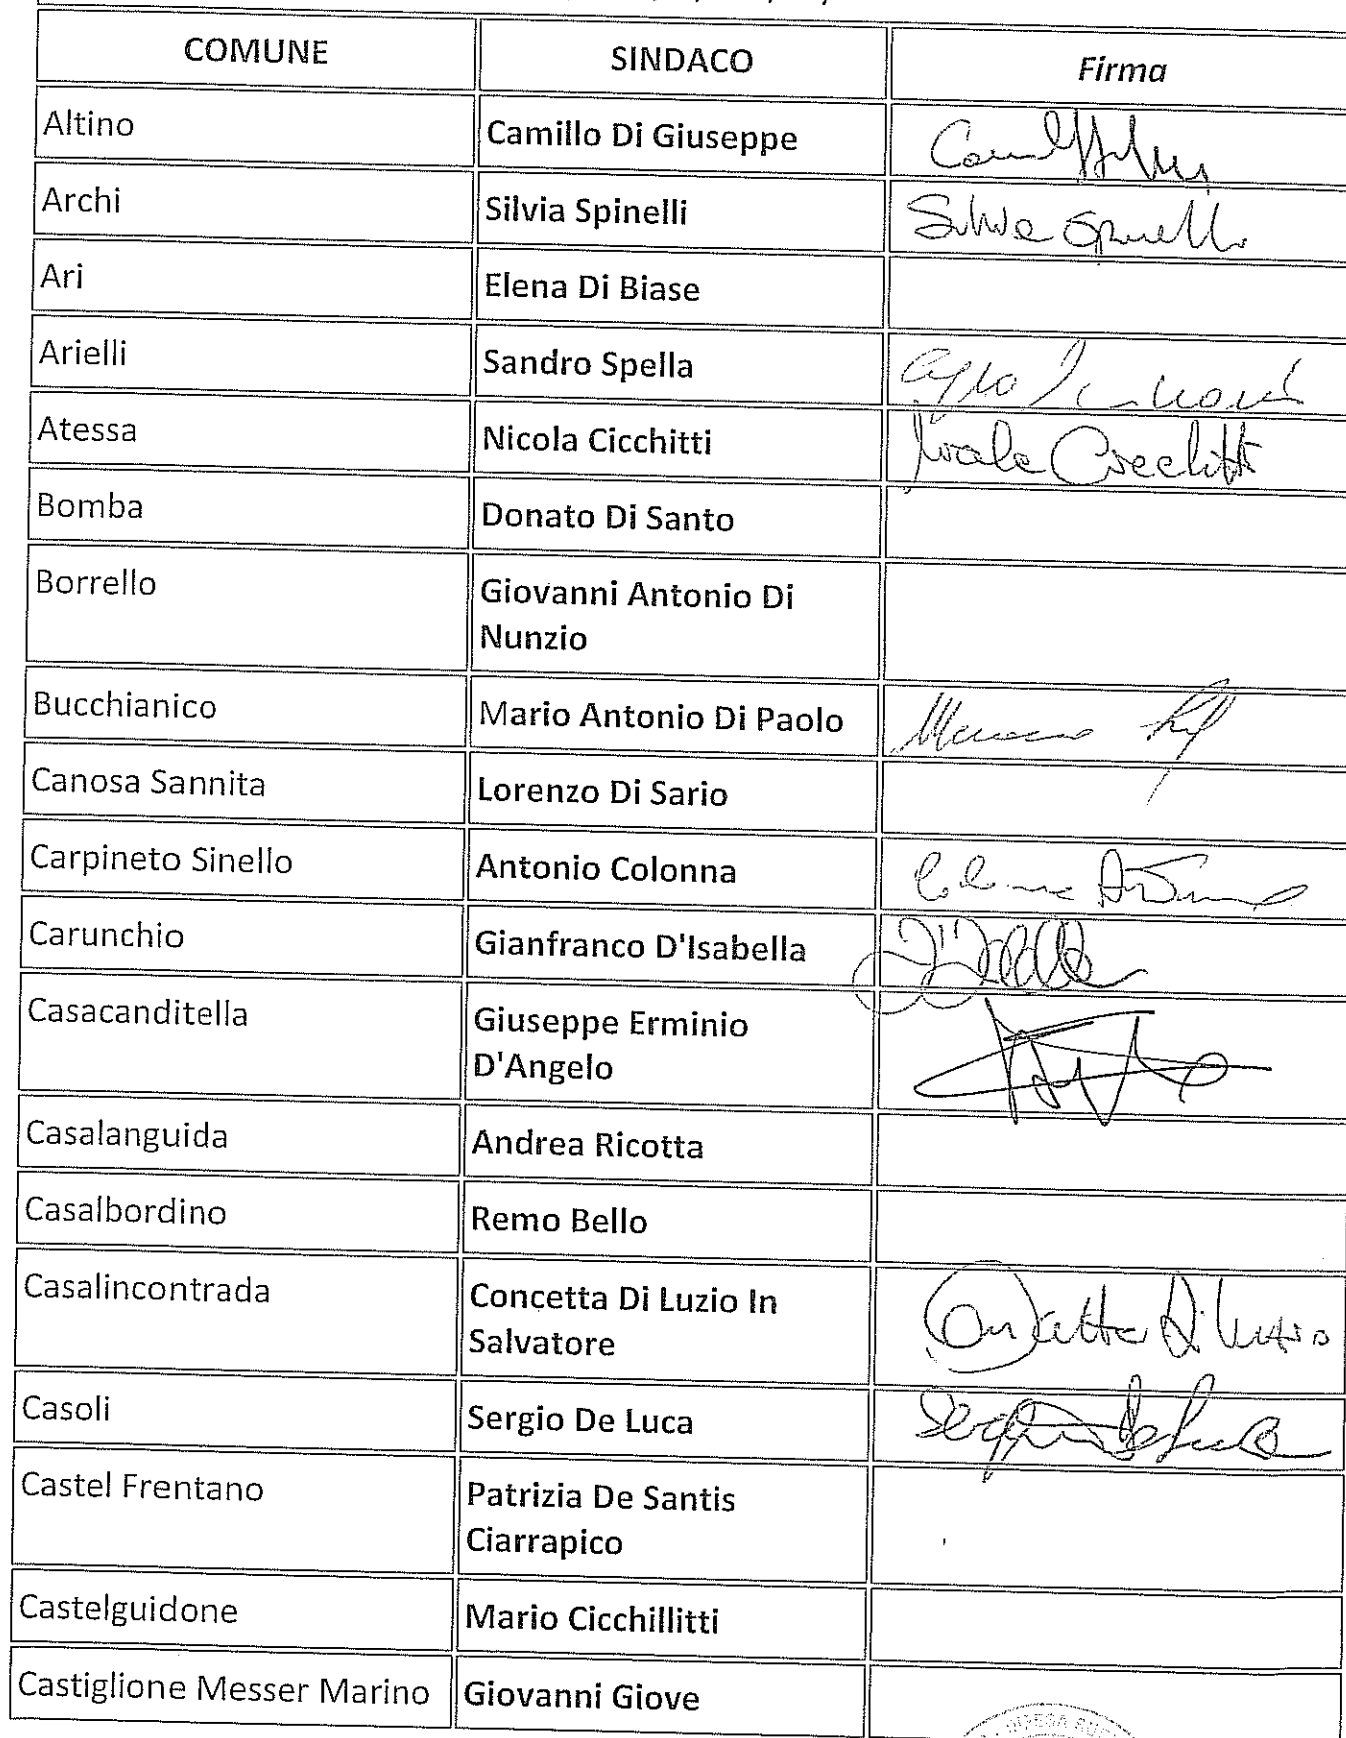 COMUNE SINDACO Firma
Altino Camillo Di Giuseppe
Archi Silvia Spinelli Silvia Spinelli
Ari Elena Di Biase
Arielli Sandro Spella
Atessa Nicola Cicchitti Nicola Cicchitti
Bomba Donato Di Santo
Borrello Giovanni Antonio Di
Nunzio
Bucchianico Mario Antonio Di Paolo
Canosa Sannita Lorenzo Di Sario
Carpineto Sinello Antonio Colonna Colonna Antonio
Carunchio Gianfranco D'Isabella
Casacanditella Giuseppe Erminio
D'Angelo
Casalanguida Andrea Ricotta
Casalbordino Remo Bello
Casalincontrada Concetta Di Luzio In
Salvatore Concetta Di Luzio
Casoli Sergio De Luca Sergio De Luca
Castel Frentano Patrizia De Santis
Ciarrapico
Castelguidone Mario Cicchillitti
Castiglione Messer Marino Giovanni Giove